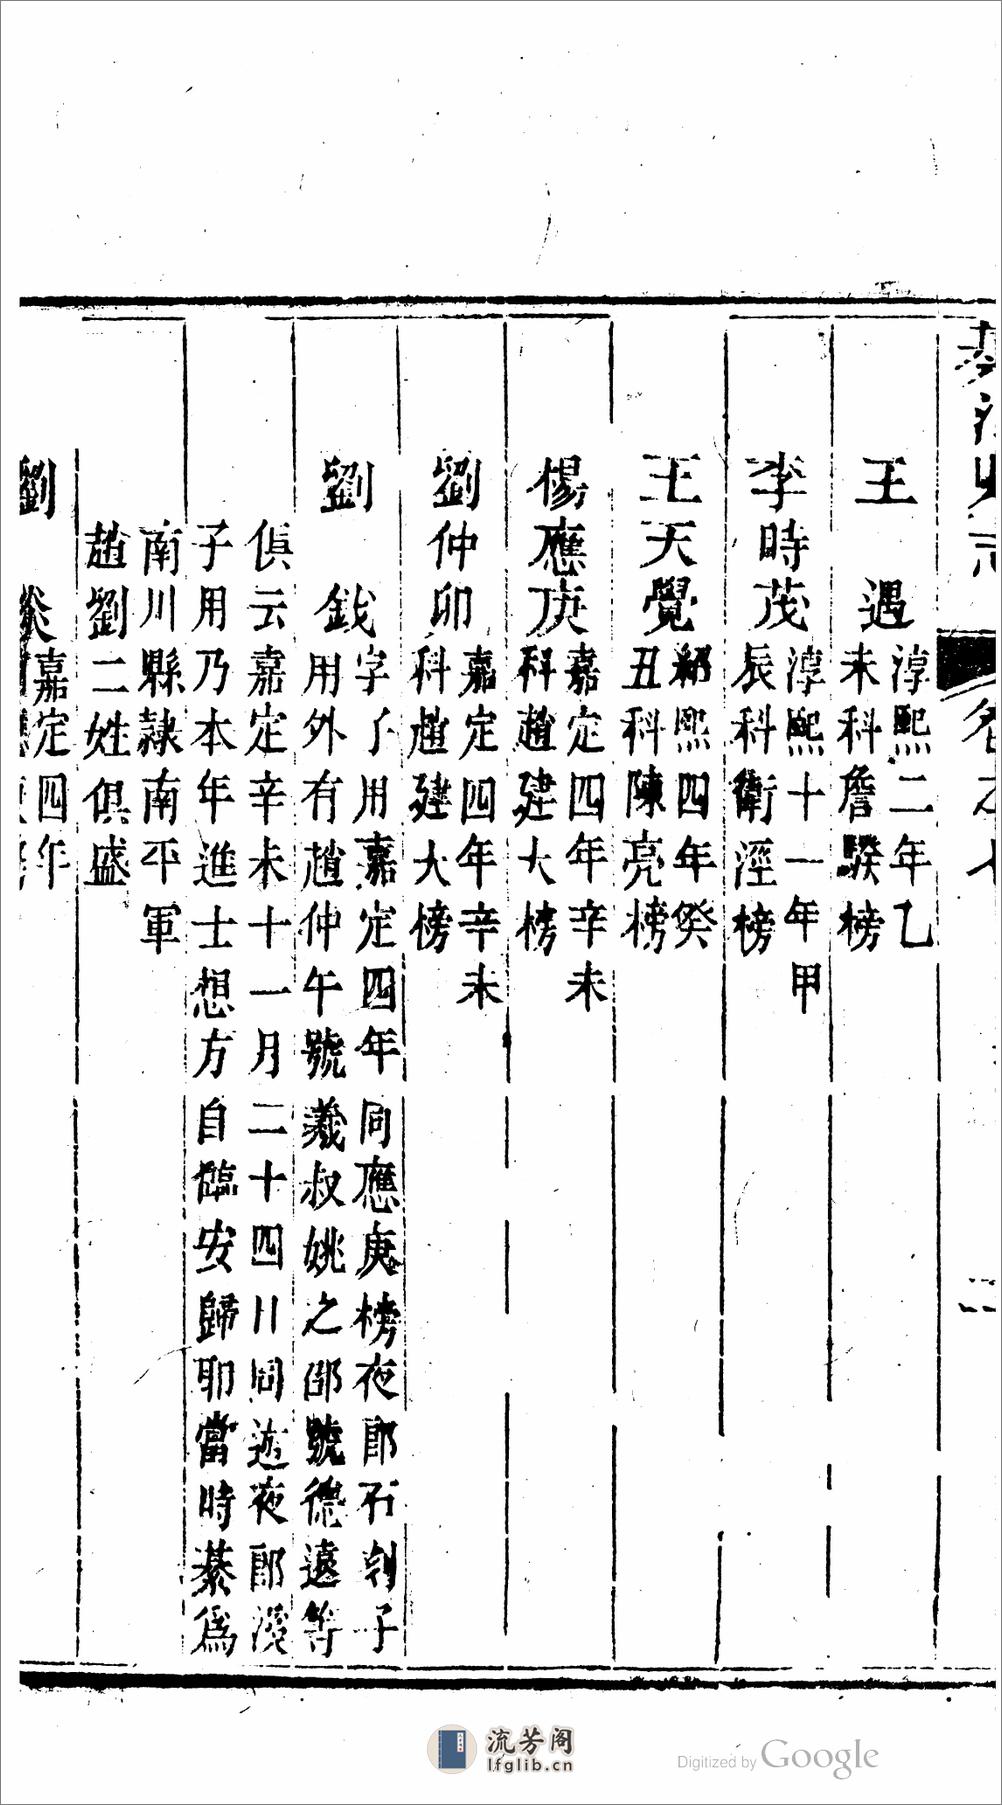 綦江縣志
卷之七
王遇
淳熙二年乙
未科詹騤榜
李時茂
淳熙十一年甲
辰科衛涇榜
王天覺
紹熙四年癸
丑科陳亮榜
楊應庚
嘉定四年辛未
科趙建大榜
劉仲卯
嘉定四年辛未
科趙建大榜
劉
字子用嘉定四年同應庚榜夜郎石刻子
用外有趙仲午號羲叔姚之邵號德遠等
偵云嘉定辛未十一月二十四日同遊夜郎溪
子用乃本年進士想方自臨安歸耶當時綦為
南川縣隷南平軍
趙劉二姓俱盛
劉炎
嘉定四年
流芳阁
lfglib.cn
Digitized by Google